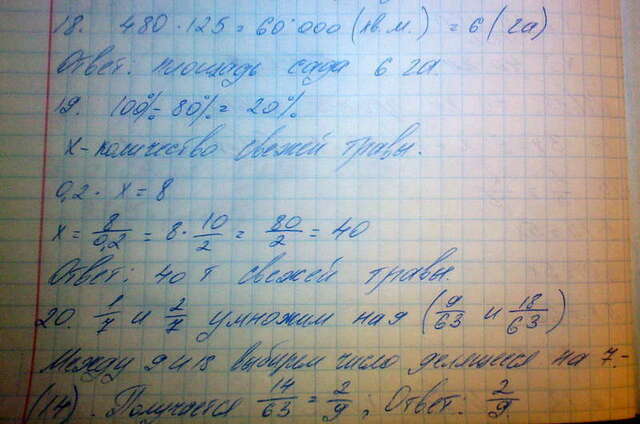 18. 480 · 125 = 60 000 (кв. м.) = 6 (га)
Ответ: площадь сада 6 га.
19. 100% - 80% = 20%
x - количество свежей травы.
0,2 · x = 8
x = 8/0,2 = 8 · 10/2 = 80/2 = 40
Ответ: 40 т свежей травы.
20. 1/7 и 2/7 умножим на 9 (9/63 и 18/63)
Между 9 и 18 выбирем число делящееся на 7. -
(14). Получается 14/63 = 2/9; Ответ: 2/9.